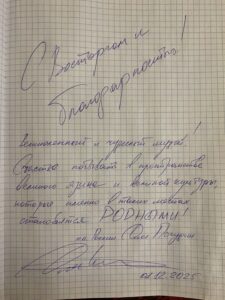 С Восторгом и
благодарностью!
Великолепный и чудесный музей!
Счастье побывать в пространстве
великого языка и великой культуры,
которые именно в таких местах
становятся РОДНЫМИ!
01.12.2025